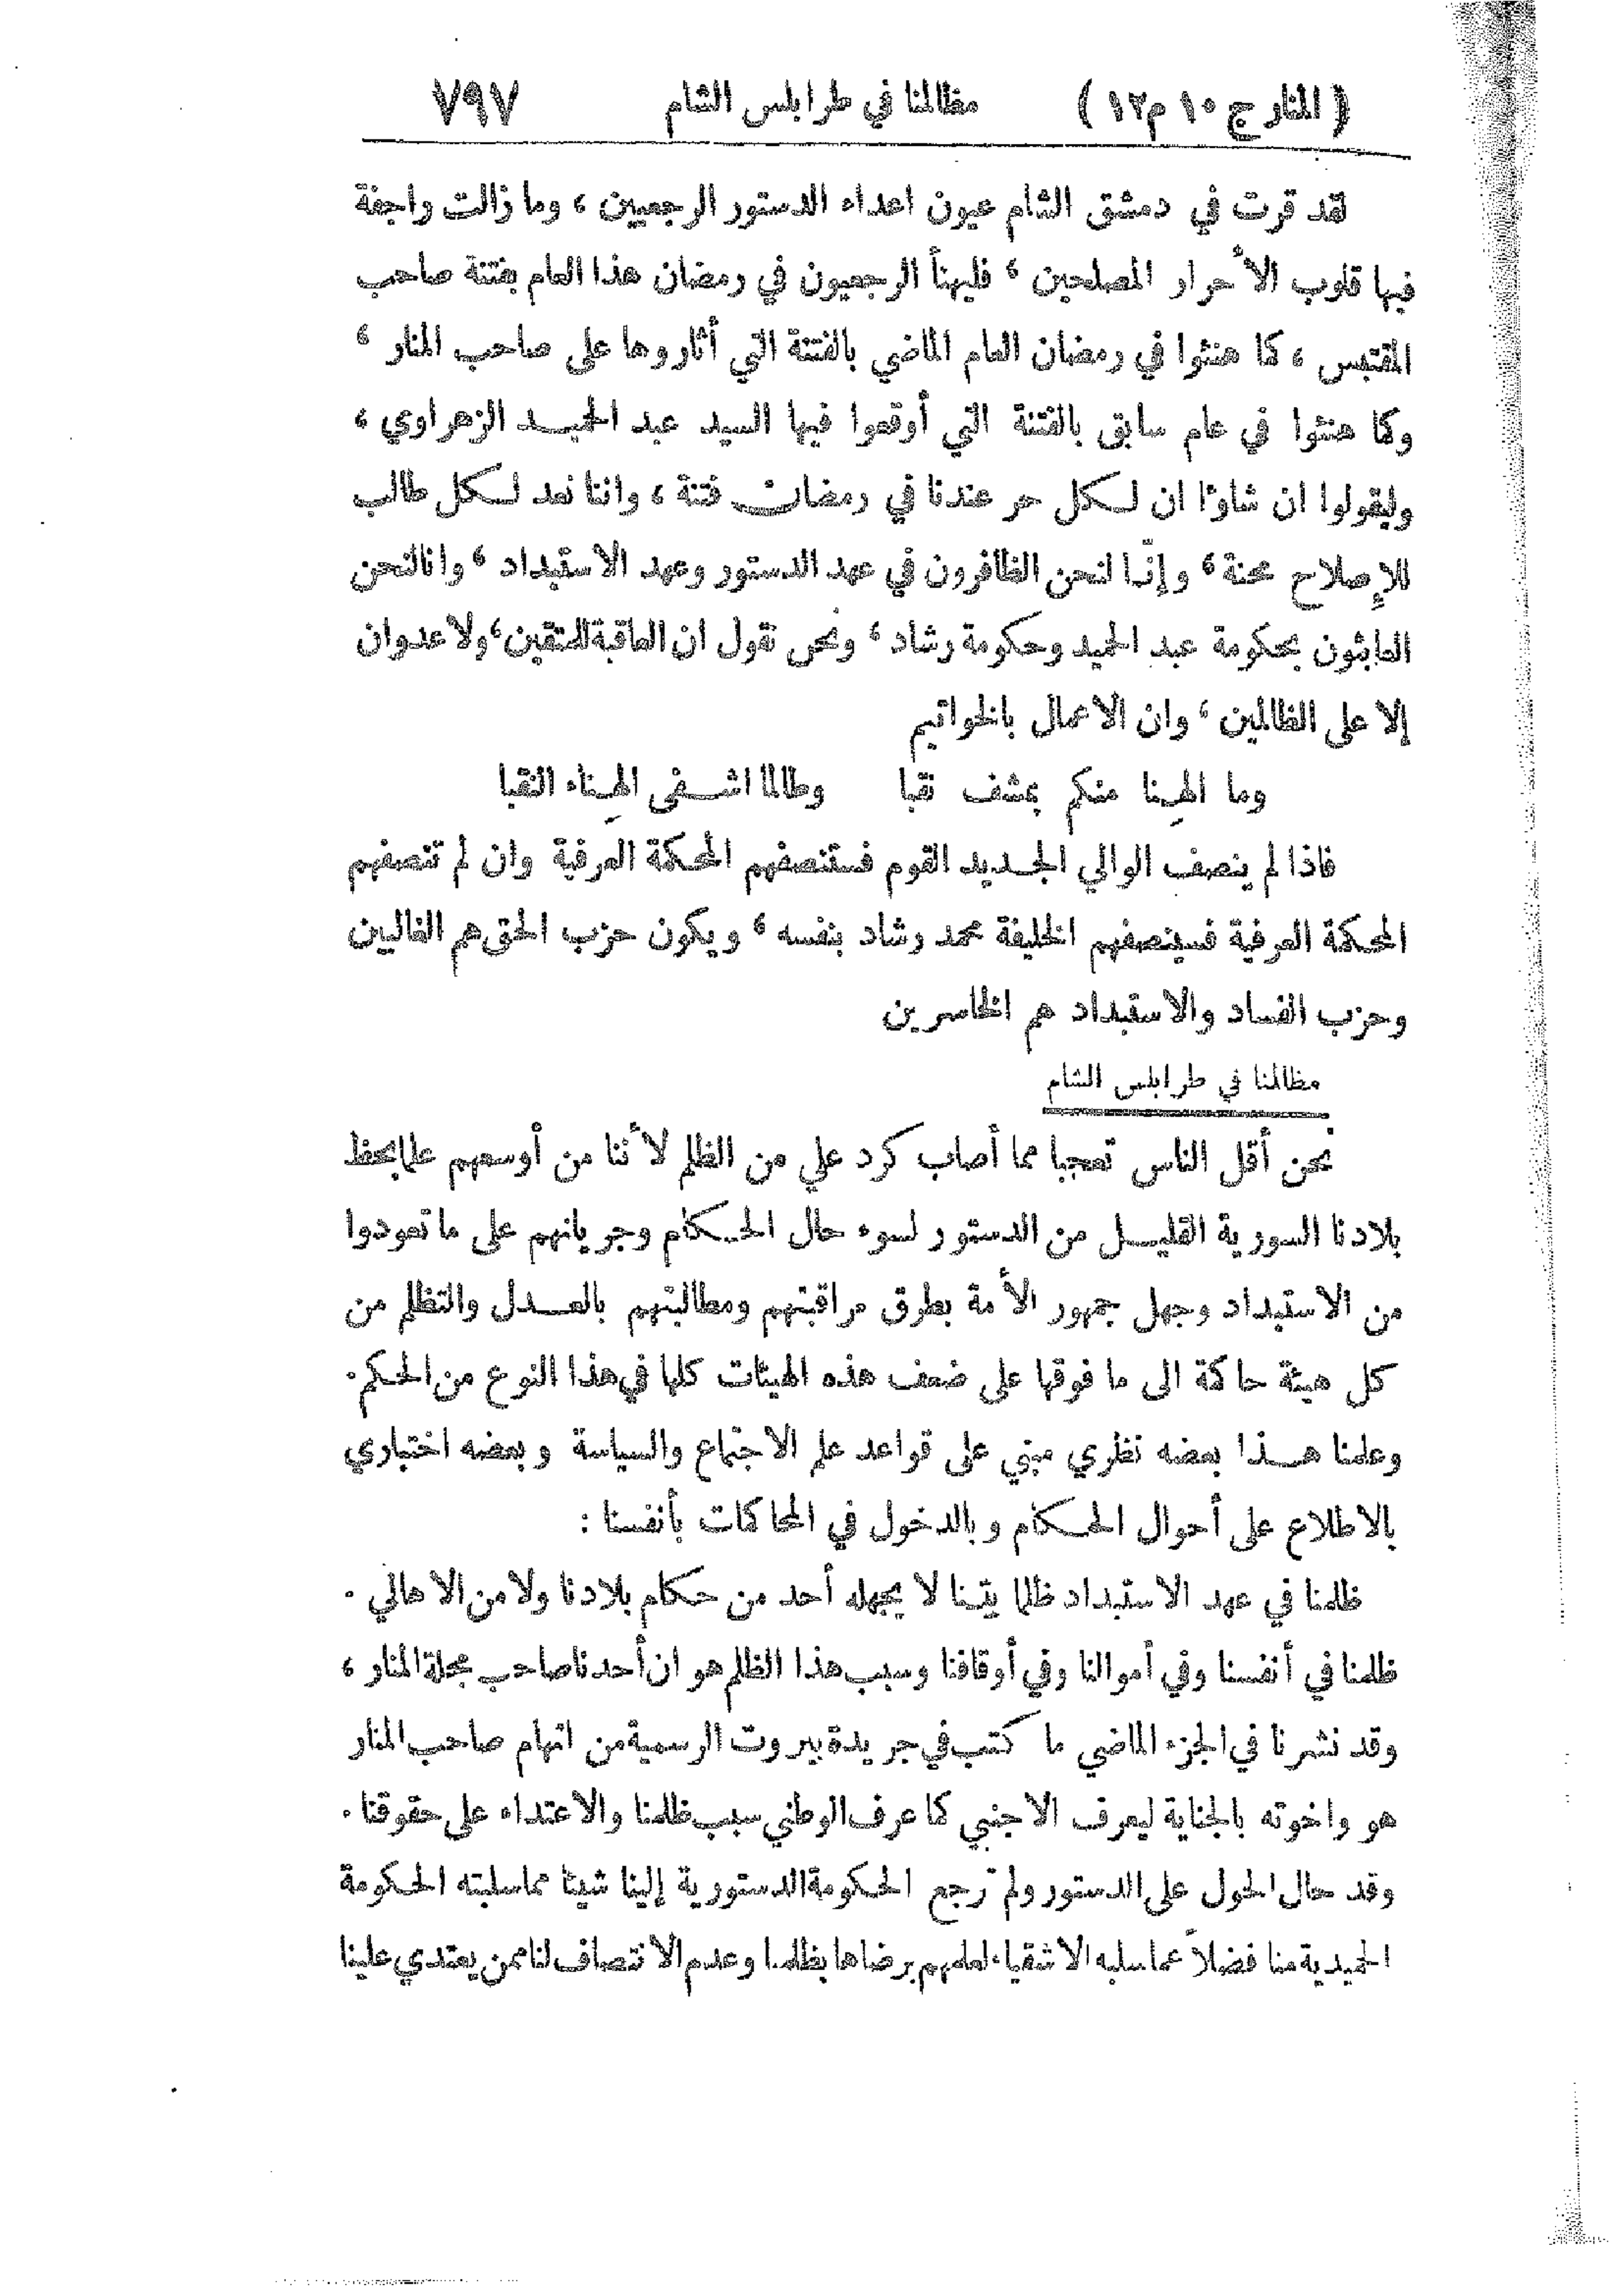 ( المنار ج ١٠ م ١٢ ) مظالمنا في طرابلس الشام ٧٩٧
لقد قرت في دمشق الشام عيون اعداء الدستور الرجعيين ، وما زالت واجفة
فيها قلوب الأحرار المصلحين ، فليهنأ الرجعيون في رمضان هذا العام بفتنة صاحب
المقتبس ، كما هنئوا في رمضان العام الماضي بالفتنة التي أثاروها على صاحب المنار ،
وكما هنئوا في عام سابق بالفتنة التي أوقعوا فيها السيد عبد الحميد الزهراوي ،
وليقولوا ان شاؤا ان لكل حر عندنا في رمضان فتنة ، واننا نعد لكل طالب
للإصلاح محنة ، وإنّا لنحن الظافرون في عهد الدستور وعهد الاستبداد ، وانا لنحن
العابثون بحكومة عبد الحميد وحكومة رشاد ، ونحن نقول ان العاقبة للمتقين ، ولا عدوان
إلا على الظالمين ، وان الاعمال بالخواتيم
وما الهِنا منكم بمشف نقبا وطالما اشفى الهِناء النقبا
فاذا لم ينصف الوالي الجديد القوم فستنصفهم المحكمة العرفية وان لم تنصفهم
المحكمة العرفية فسينصفهم الخليفة محمد رشاد بنفسه ، ويكون حزب الحق هم الغالبين
وحزب الفساد والاستبداد هم الخاسرين
مظالمنا في طرابلس الشام
نحن أقل الناس تعجبا مما أصاب كرد علي من الظلم لأننا من أوسعهم علما بحظ
بلادنا السورية القليل من الدستور لسوء حال الحكام وجريانهم على ما تعودوا
من الاستبداد وجهل جمهور الأمة بطرق مراقبتهم ومطالبتهم بالعدل والتظلم من
كل هيئة حاكمة الى ما فوقها على ضعف هذه الهيئات كلها في هذا النوع من الحكم .
وعلمنا هذا بعضه نظري مبني على قواعد علم الاجتماع والسياسة وبعضه اختباري
بالاطلاع على أحوال الحكام وبالدخول في المحاكمات بأنفسنا :
ظلمنا في عهد الاستبداد ظلما بيّنا لا يجهله أحد من حكام بلادنا ولا من الاهالي .
ظلمنا في أنفسنا وفي أموالنا وفي أوقافنا وسبب هذا الظلم هو ان أحدنا صاحب مجلة المنار ،
وقد نشرنا في الجزء الماضي ما كتب في جريدة بيروت الرسمية من اتهام صاحب المنار
هو واخوته بالجناية ليعرف الاجنبي كما عرف الوطني سبب ظلمنا والاعتداء على حقوقنا .
وقد حال الحول على الدستور ولم ترجع الحكومة الدستورية إلينا شيئا مما سلبته الحكومة
الحميدية منا فضلاً عما سلبه الاشقياء لعلمهم برضاها بظلمنا وعدم الانتصاف لنا ممن يعتدي علينا